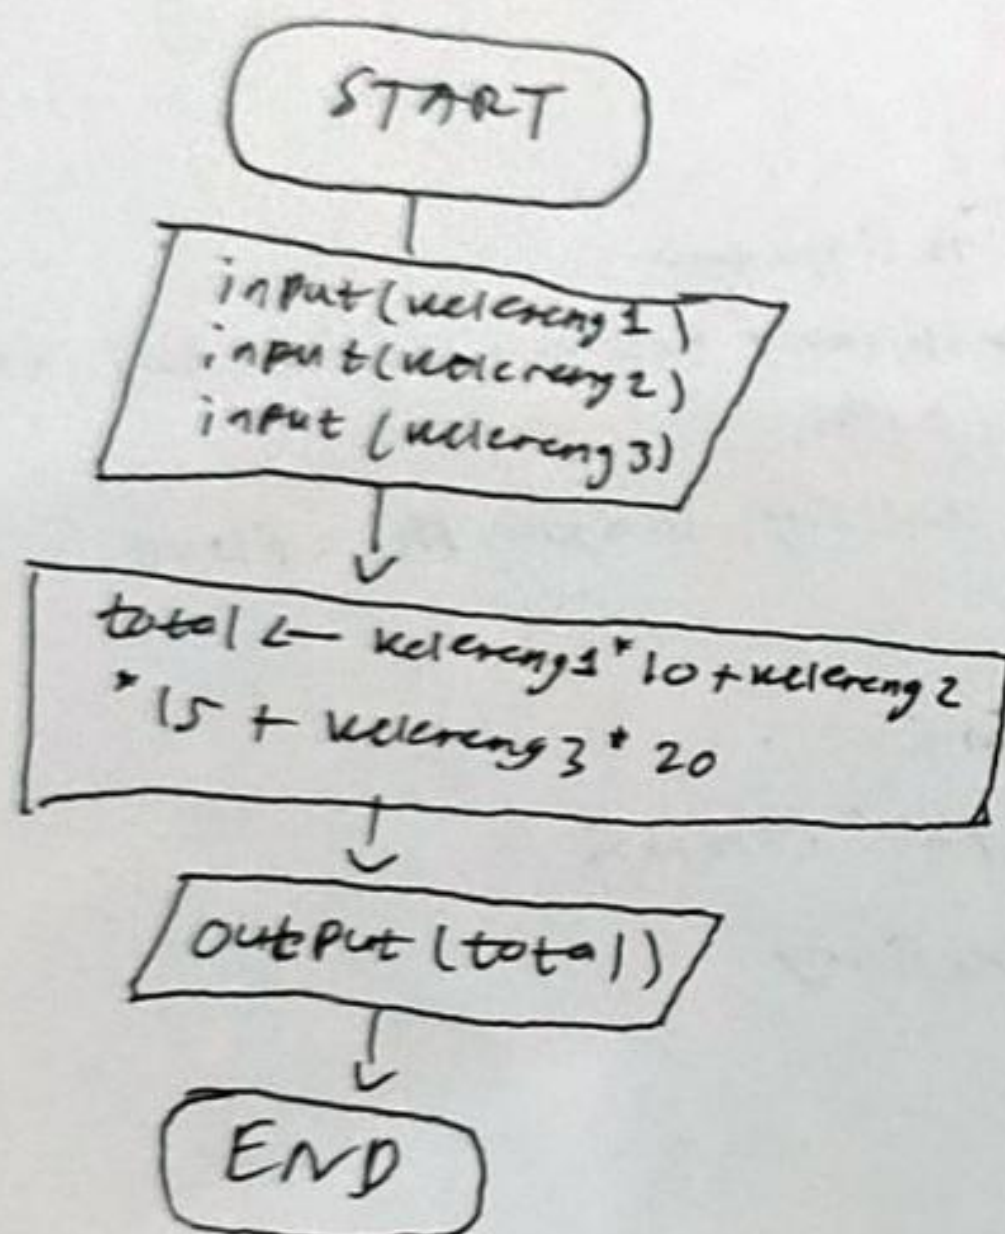 START
input(kelereng1)
input(kelereng2)
input (kelereng3)
total ← kelereng1*10+kelereng2
*15 + kelereng3*20
output (total)
END